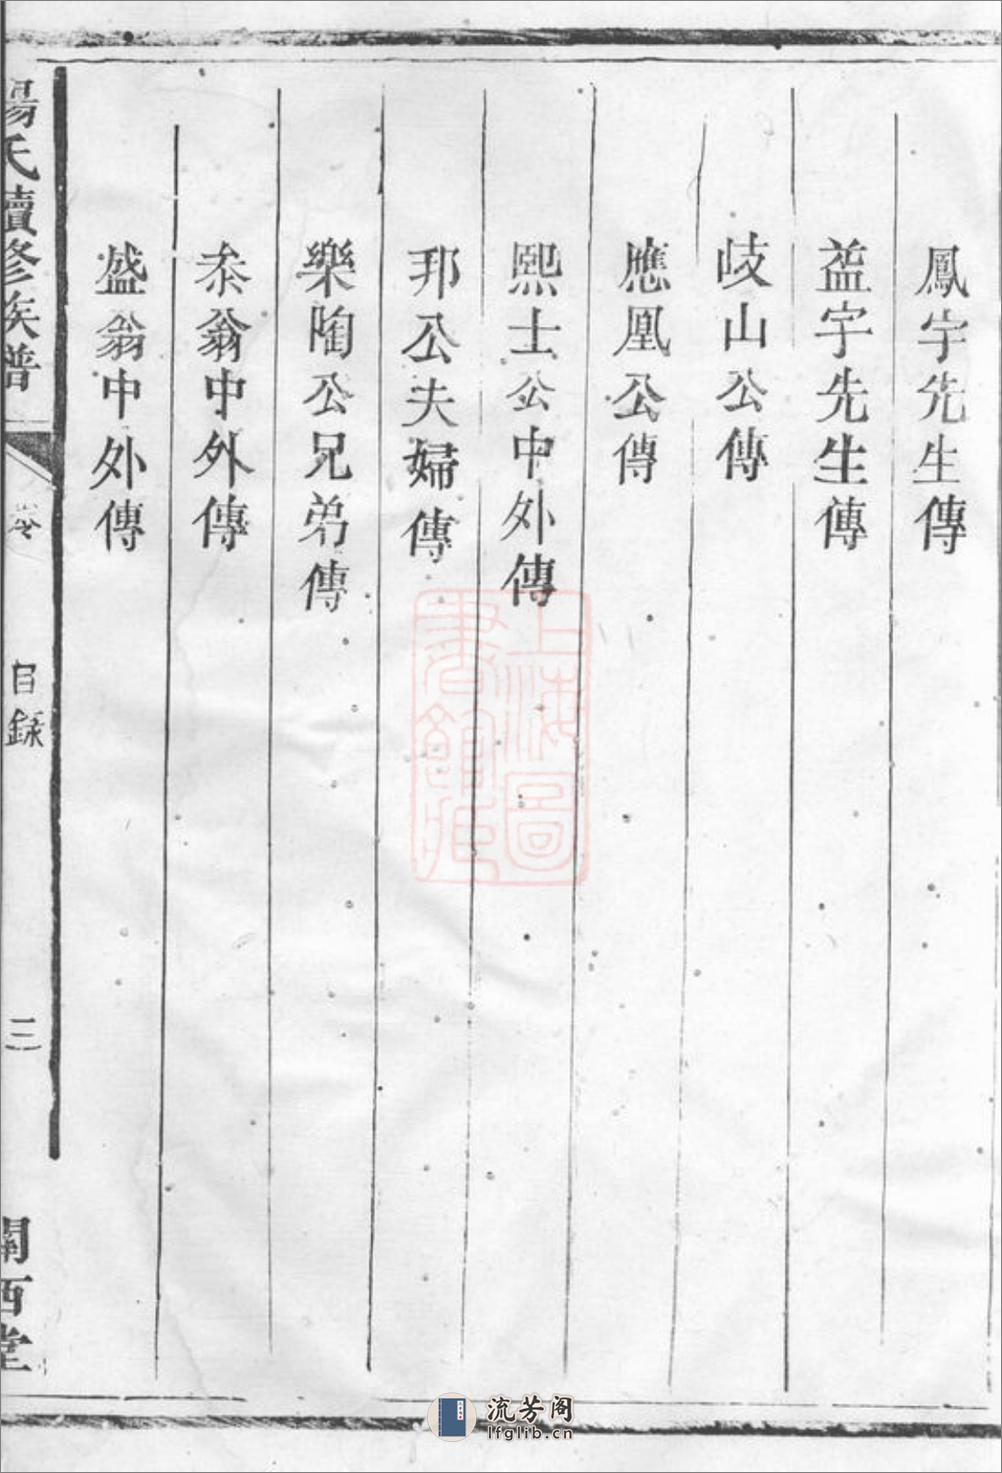 鳳宇先生傳
益宇先生傳
歧山公傳
應凰公傳
熙士公中外傳
邦公夫婦傳
樂陶公兄弟傳
叅翁中外傳
盛翁中外傳
楊氏續修族譜
卷
目録
三
關西堂
上海圖
書館藏
流芳阁
lfglib.cn